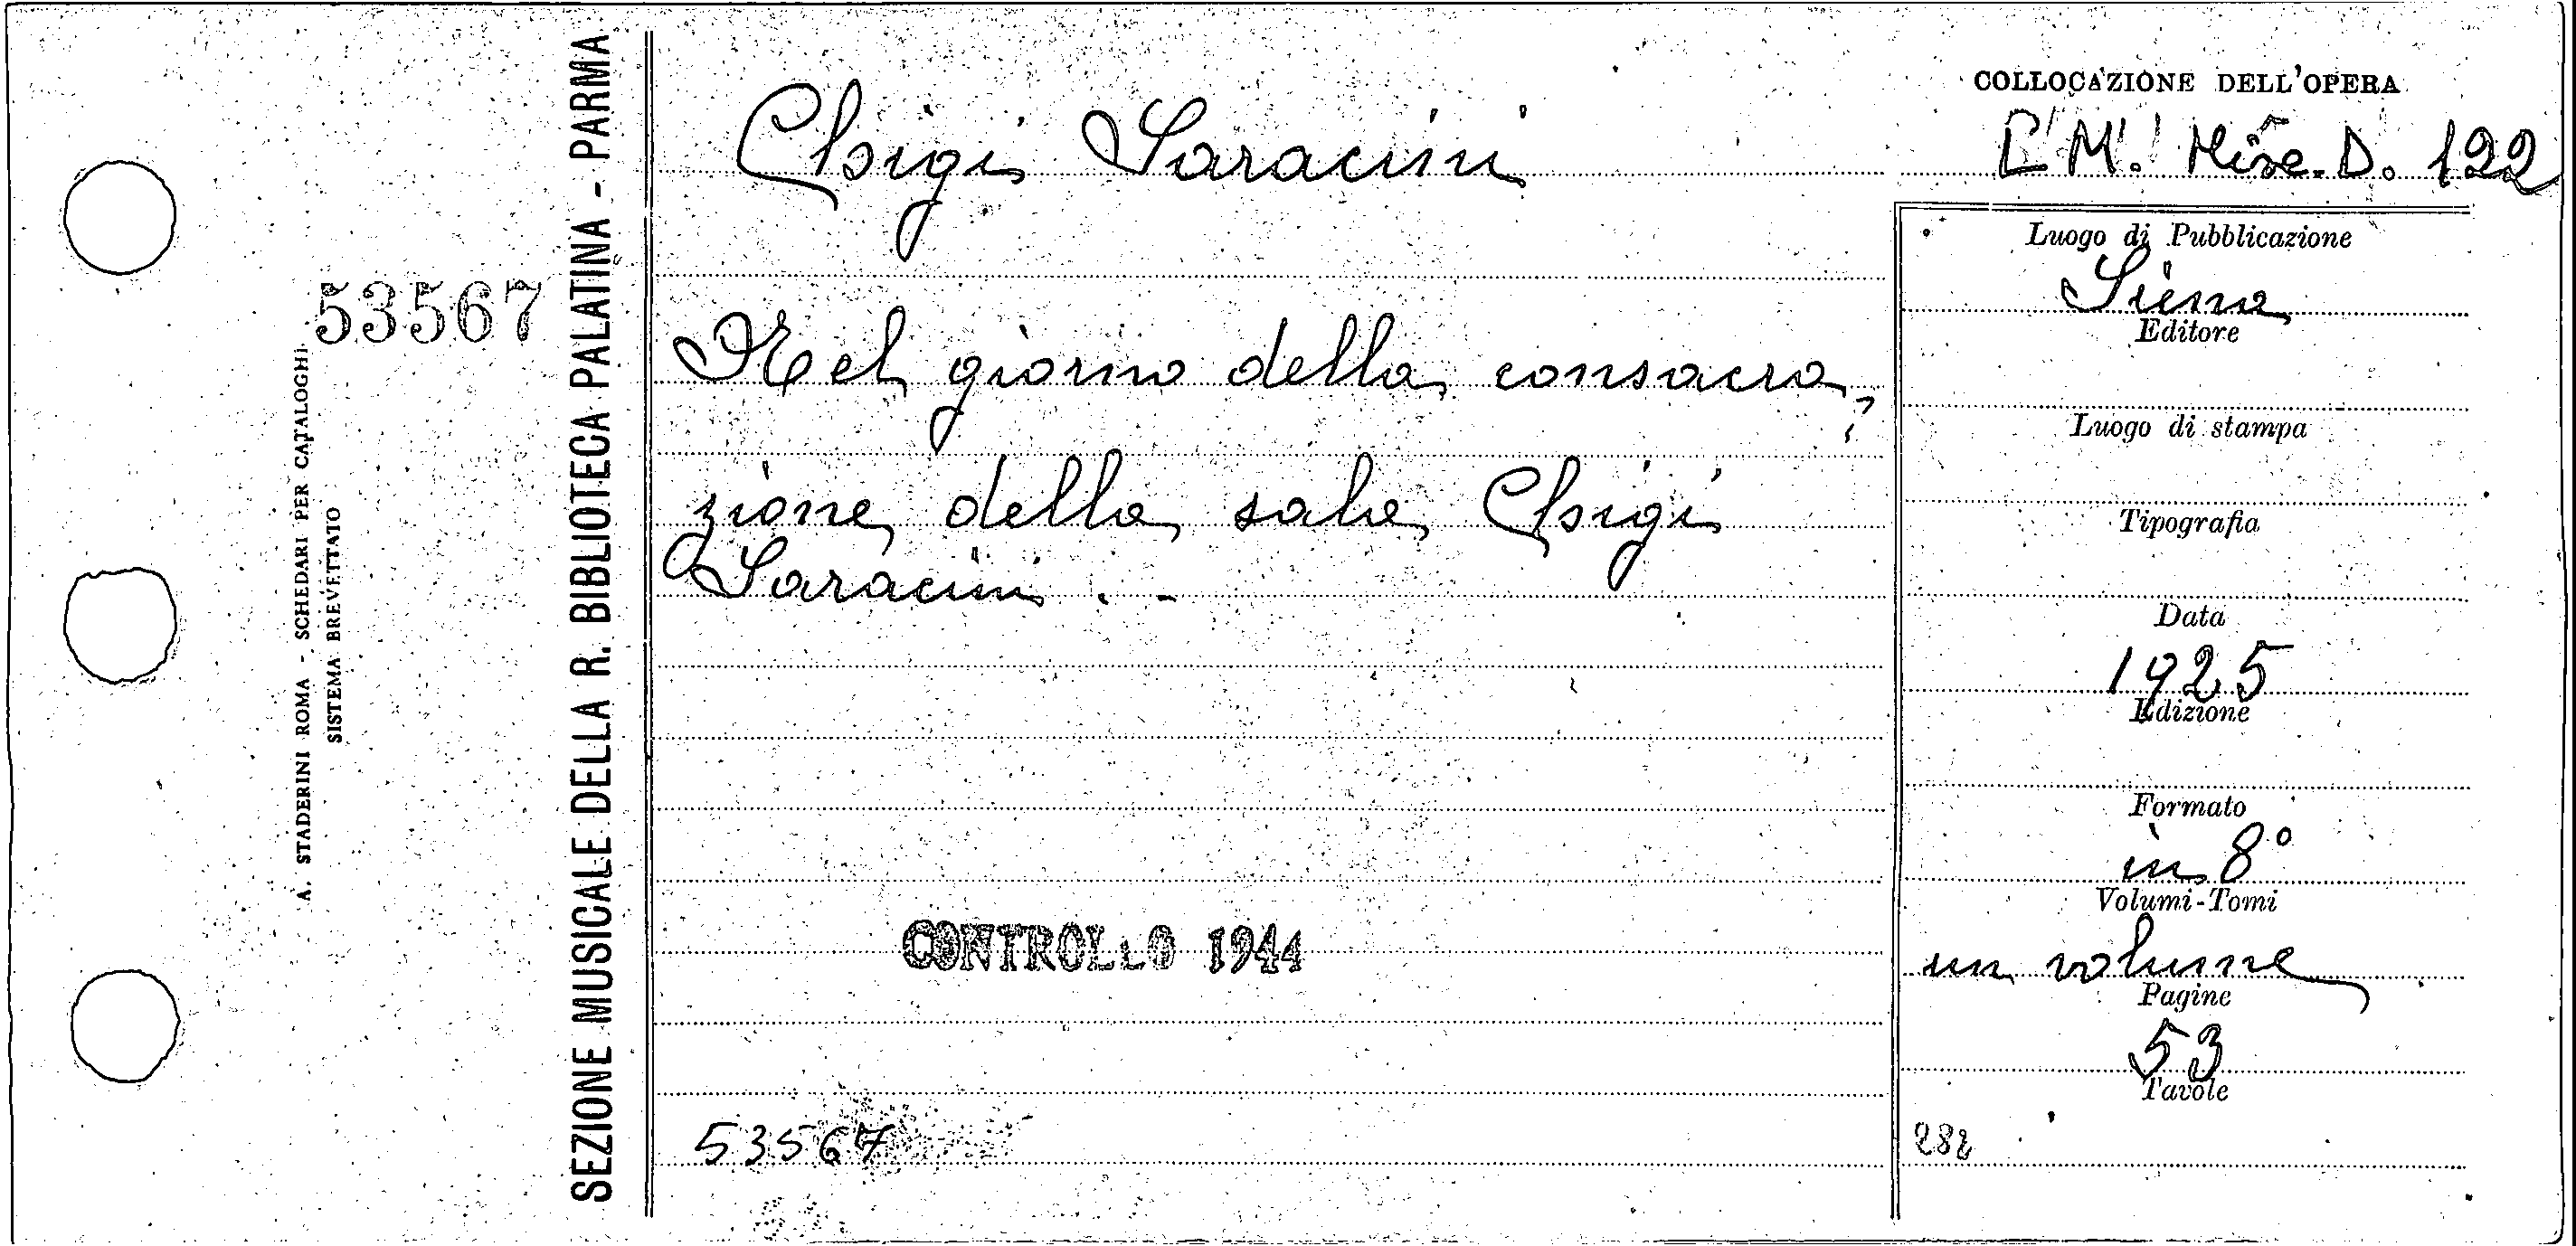 Chigi Saracini
COLLOCAZIONE DELL'OPERA
C M. Misc. D. 122
Luogo di Pubblicazione
Siena
Editore
Luogo di stampa
Tipografia
Data
1925
Edizione
Formato
in 8°
Volumi-Tomi
un volume
Pagine
53
Tavole
282
53567
Nel giorno della consacra-
zione della sala Chigi
Saracini . -
CONTROLLO 1944
53567
SEZIONE MUSICALE DELLA R. BIBLIOTECA PALATINA - PARMA
A. STADERINI ROMA - SCHEDARI PER CATALOGHI
SISTEMA BREVETTATO